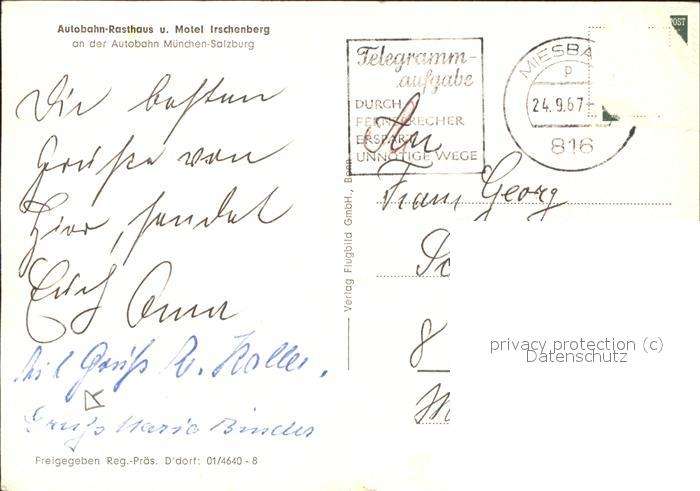 Autobahn-Rasthaus u. Motel Irschenberg
an der Autobahn München-Salzburg
Die besten
Grüße von
hier, sendet
Euch Oma
Mit Gruß
Gruß Maria Binder
Freigegeben Reg.-Präs. D'dorf: 01/4640 - 8
Verlag Flugbild GmbH., Bonn
Telegramm-
aufgabe
DURCH
FERNSPRECHER
ERSPART
UNNÖTIGE WEGE
MIESBA
p
24.9.67-
816
POST
An
Georg
8
privacy protection (c)
Datenschutz